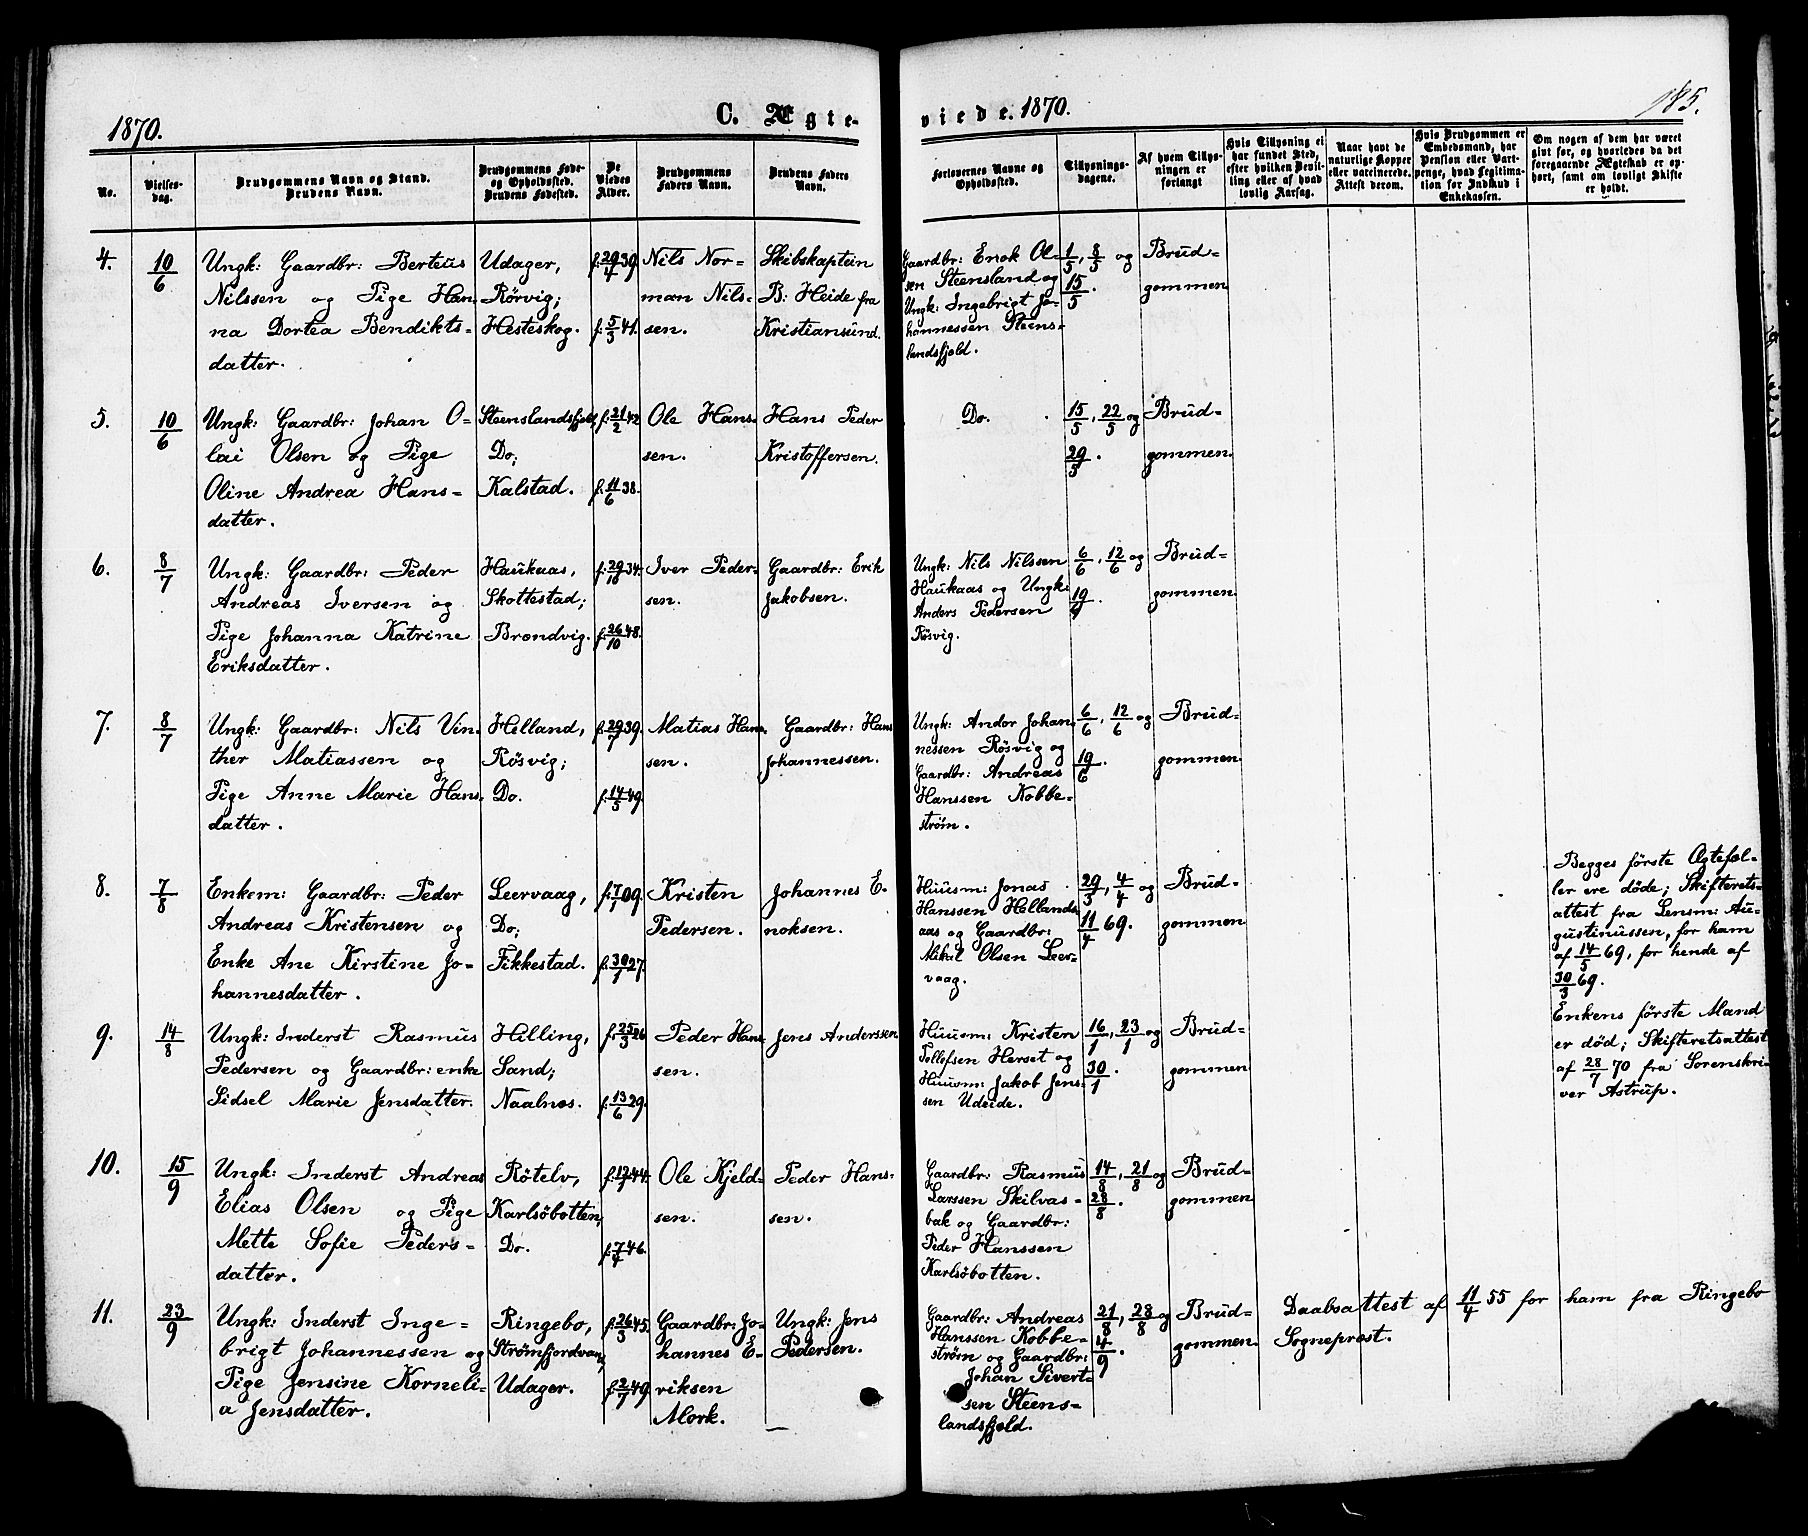 1870.
C. Ægte-
viede. 1870.
185.
No.
Vielses-
dag.
Brudgommens Navn og Stand.
Brudens Navn.
Brudgommens Føde-
og Opholdssted.
Brudens Fødested.
De
Viedes
Alder.
Brudgommens
Faders Navn.
Brudens Faders
Navn.
Forlovernes Navne og
Opholdssted.
Tillysnings-
dagene.
Af hvem Tillys-
ningen er
forlangt
Hvis Tillysning ei
har fundet Sted,
efter hvilken Bevil-
ling eller af hvad
lovlig Aarsag.
Naar havt de
naturlige Kopper
eller vaccinerede.
Attest derom.
Hvis Brudgommen er
Embedsmand, har
Pension eller Vart-
penge, hvad Legitima-
tion for Indskud i
Enkekassen.
Om nogen af dem har været
givt før, og hvorledes da det
foregaaende Ægteskab er op-
hørt, samt om lovligt Skifte
er holdt.
4.
10/6
Ungk: Gaardbr: Berteus
Nilssen og Pige Han-
na Dortea Bendikts-
datter.
Udager,
Rörvig;
Hesteskog.
f. 29/7 39.
f. 5/3 41.
Nils Nor-
man Nils-
sen.
Skibskaptein
B. Heide fra
Kristiansund.
Gaardbr: Enok Ol-
sen Steensland og
Ungk: Ingebrigt Jo-
hannessen Steens-
landsfjeld.
1/5, 8/5 og
15/5.
Brud-
gommen
5.
10/6
Ungk: Gaardbr: Johan O-
lai Olsen og Pige
Oline Andrea Hans-
datter.
Steenslandsfjeld,
Do;
Kalstad.
f. 21/2 42
f. 11/6 38.
Ole Hans-
sen.
Hans Peder
Kristoffersen.
Do.
15/5, 22/5 og
29/5.
Brud-
gommen.
6.
8/7
Ungk: Gaardbr: Peder
Andreas Iversen og
Pige Johanna Katrine
Eriksdatter.
Haukaas,
Skottestad;
Brændvig.
f. 29/10 34.
f. 26/10 48.
Iver Peder-
sen.
Gaardbr: Erik
Jakobsen.
Ungk: Nils Nilssen
Haukaas og Ungk:
Anders Pedersen
Rösvig.
6/6, 12/6 og
19/6.
Brud-
gommen.
7.
8/7
Ungk: Gaardbr: Nils Vin-
ther Matiassen og
Pige Anne Marie Hans-
datter.
Helland,
Rösvig;
Do.
f. 29/7 39.
f. 14/5 49.
Matias Hans-
sen.
Gaardbr: Hans
Johannessen.
Ungk: Andor Johan-
nessen Rösvig og
Gaardbr: Andreas
Hanssen Kobbe-
ström.
6/6, 12/6 og
19/6
Brud-
gommen
8.
7/8
Enkem: Gaardbr: Peder
Andreas Kristensen og
Enke Ane Kirstine Jo-
hannesdatter.
Leervaag,
Do;
Fikkestad.
f. 7/1 09.
f. 30/1 27.
Kristen
Pedersen.
Johannes E-
noksen.
Huusm: Jonas
Hanssen Hellands
aas og Gaardbr:
Mikal Olsen Leer-
vaag.
29/3, 4/4 og
11/4 69.
Brud-
gommen
Begges förste Ægtefæl-
ler ere döde; Skifterets-
attest fra Lensm: Au-
gustinussen, for ham
af 14/5 69, for hende af
30/3 69.
9.
14/8
Ungk: Inderst Rasmus
Pedersen og Gaardbr: enke
Sidsel Marie Jensdatter.
Hilling,
Sand;
Naalnæs.
f. 25/3 26
f. 13/6 29.
Peder Hans-
sen.
Jens Anderssen
Huusm: Kristen
Tollefsen Herset og
Huusm: Jakob Jens-
sen Udeide.
16/1, 23/1 og
30/1.
Brud-
gommen
Enkens förste Mand
er död; Skifteretsattest
af 28/7 70 fra Sorenskri-
ver Astrup.
10.
15/9
Ungk: Inderst Andreas
Elias Olsen og Pige
Mette Sofie Peders-
datter.
Rötelv,
Karlsöbotten;
Do.
f. 12/7 44.
f. 7/4 46.
Ole Kjeld-
sen.
Peder Hans-
sen.
Gaardbr: Rasmus
Larssen Skilvas-
bak og Gaardbr:
Peder Hanssen
Karlsöbotten.
14/8, 21/8 og
28/8.
Brud-
gommen
11.
23/9
Ungk: Inderst Inge-
brigt Johannessen og
Pige Jensine Korneli-
a Jensdatter.
Ringebo,
Strömfjordvand;
Udager.
f. 26/3 45.
f. 2/7 49.
Gaardbr: Jo-
hannes E-
riksen
Mork.
Ungk: Jens
Pedersen.
Gaardbr: Andreas
Hanssen Kobbe-
ström og Gaardbr:
Johan Sivert-
sen Steens-
landsfjeld.
21/8, 28/8 og
4/9.
Brud-
gommen.
Daabsattest af 11/4 55 for ham fra Ringebo
Sogneprest.